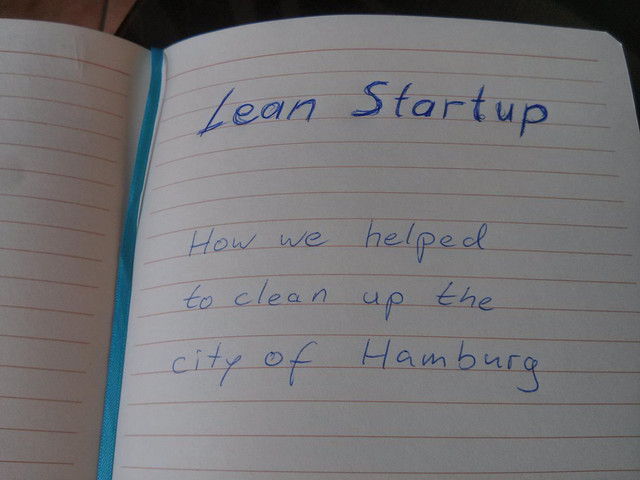 Lean Startup
How we helped
to clean up the
city of Hamburg